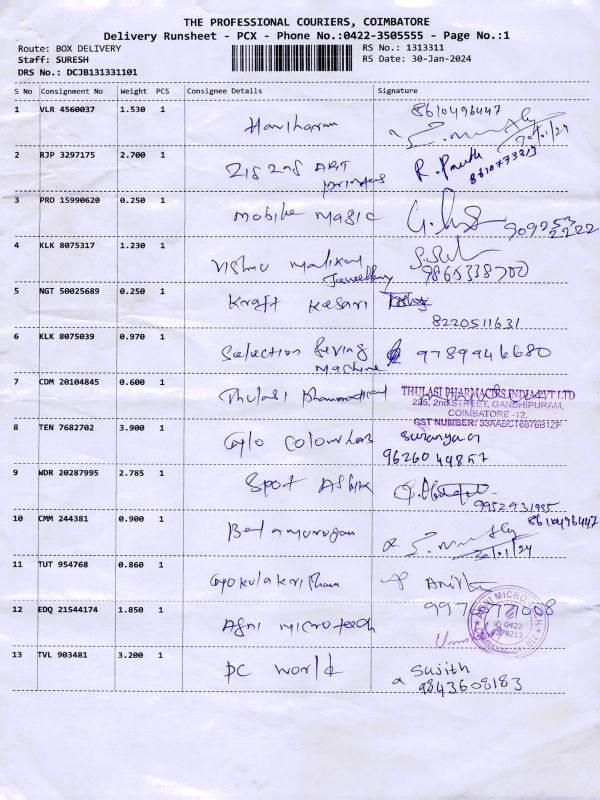 THE PROFESSIONAL COURIERS, COIMBATORE
Delivery Runsheet - PCX - Phone No.:0422-3505555 - Page No.:1
Route: BOX DELIVERY
RS No.: 1313311
Staff: SURESH
RS Date: 30-Jan-2024
DRS No.: DCJB131331101
S No Consignment No Weight PCS Consignee Details Signature
1 VLR 4560037 1.530 1 Hariharan 8610496447
30/01/24
2 RJP 3297175 2.700 1 Zig Zag ART
printers
8610773213
3 PRO 15990620 0.250 1 mobile magic
909253
2222
4 KLK 8075317 1.230 1 Vishnu
Jewellery 9865338700
5 NGT 50025689 0.250 1 Kraft Kesari
8220511631
6 KLK 8075039 0.970 1 Selection Sewing 9789946680
Machine
7 CDM 20104845 0.600 1 Thulasi THULASI PHARMACIES INDIA PVT LTD
225, 2nd STREET, GANDHIPURAM,
COIMBATORE -12.
GST NUMBER: 33AABCT6876B1ZF
8 TEN 7682702 3.900 1 Colours
9626044857
9 WDR 20287995 2.785 1 Spot
9952931955
10 CMM 244381 0.900 1 Balamurugan 8610496447
30/01/24
11 TUT 954768 0.860 1 Gokulakrishnan
9976077008
12 EDQ 21544174 1.850 1 Agni microtech
MICRO
0422
13 TVL 903481 3.200 1 PC world Sujith
9843608183